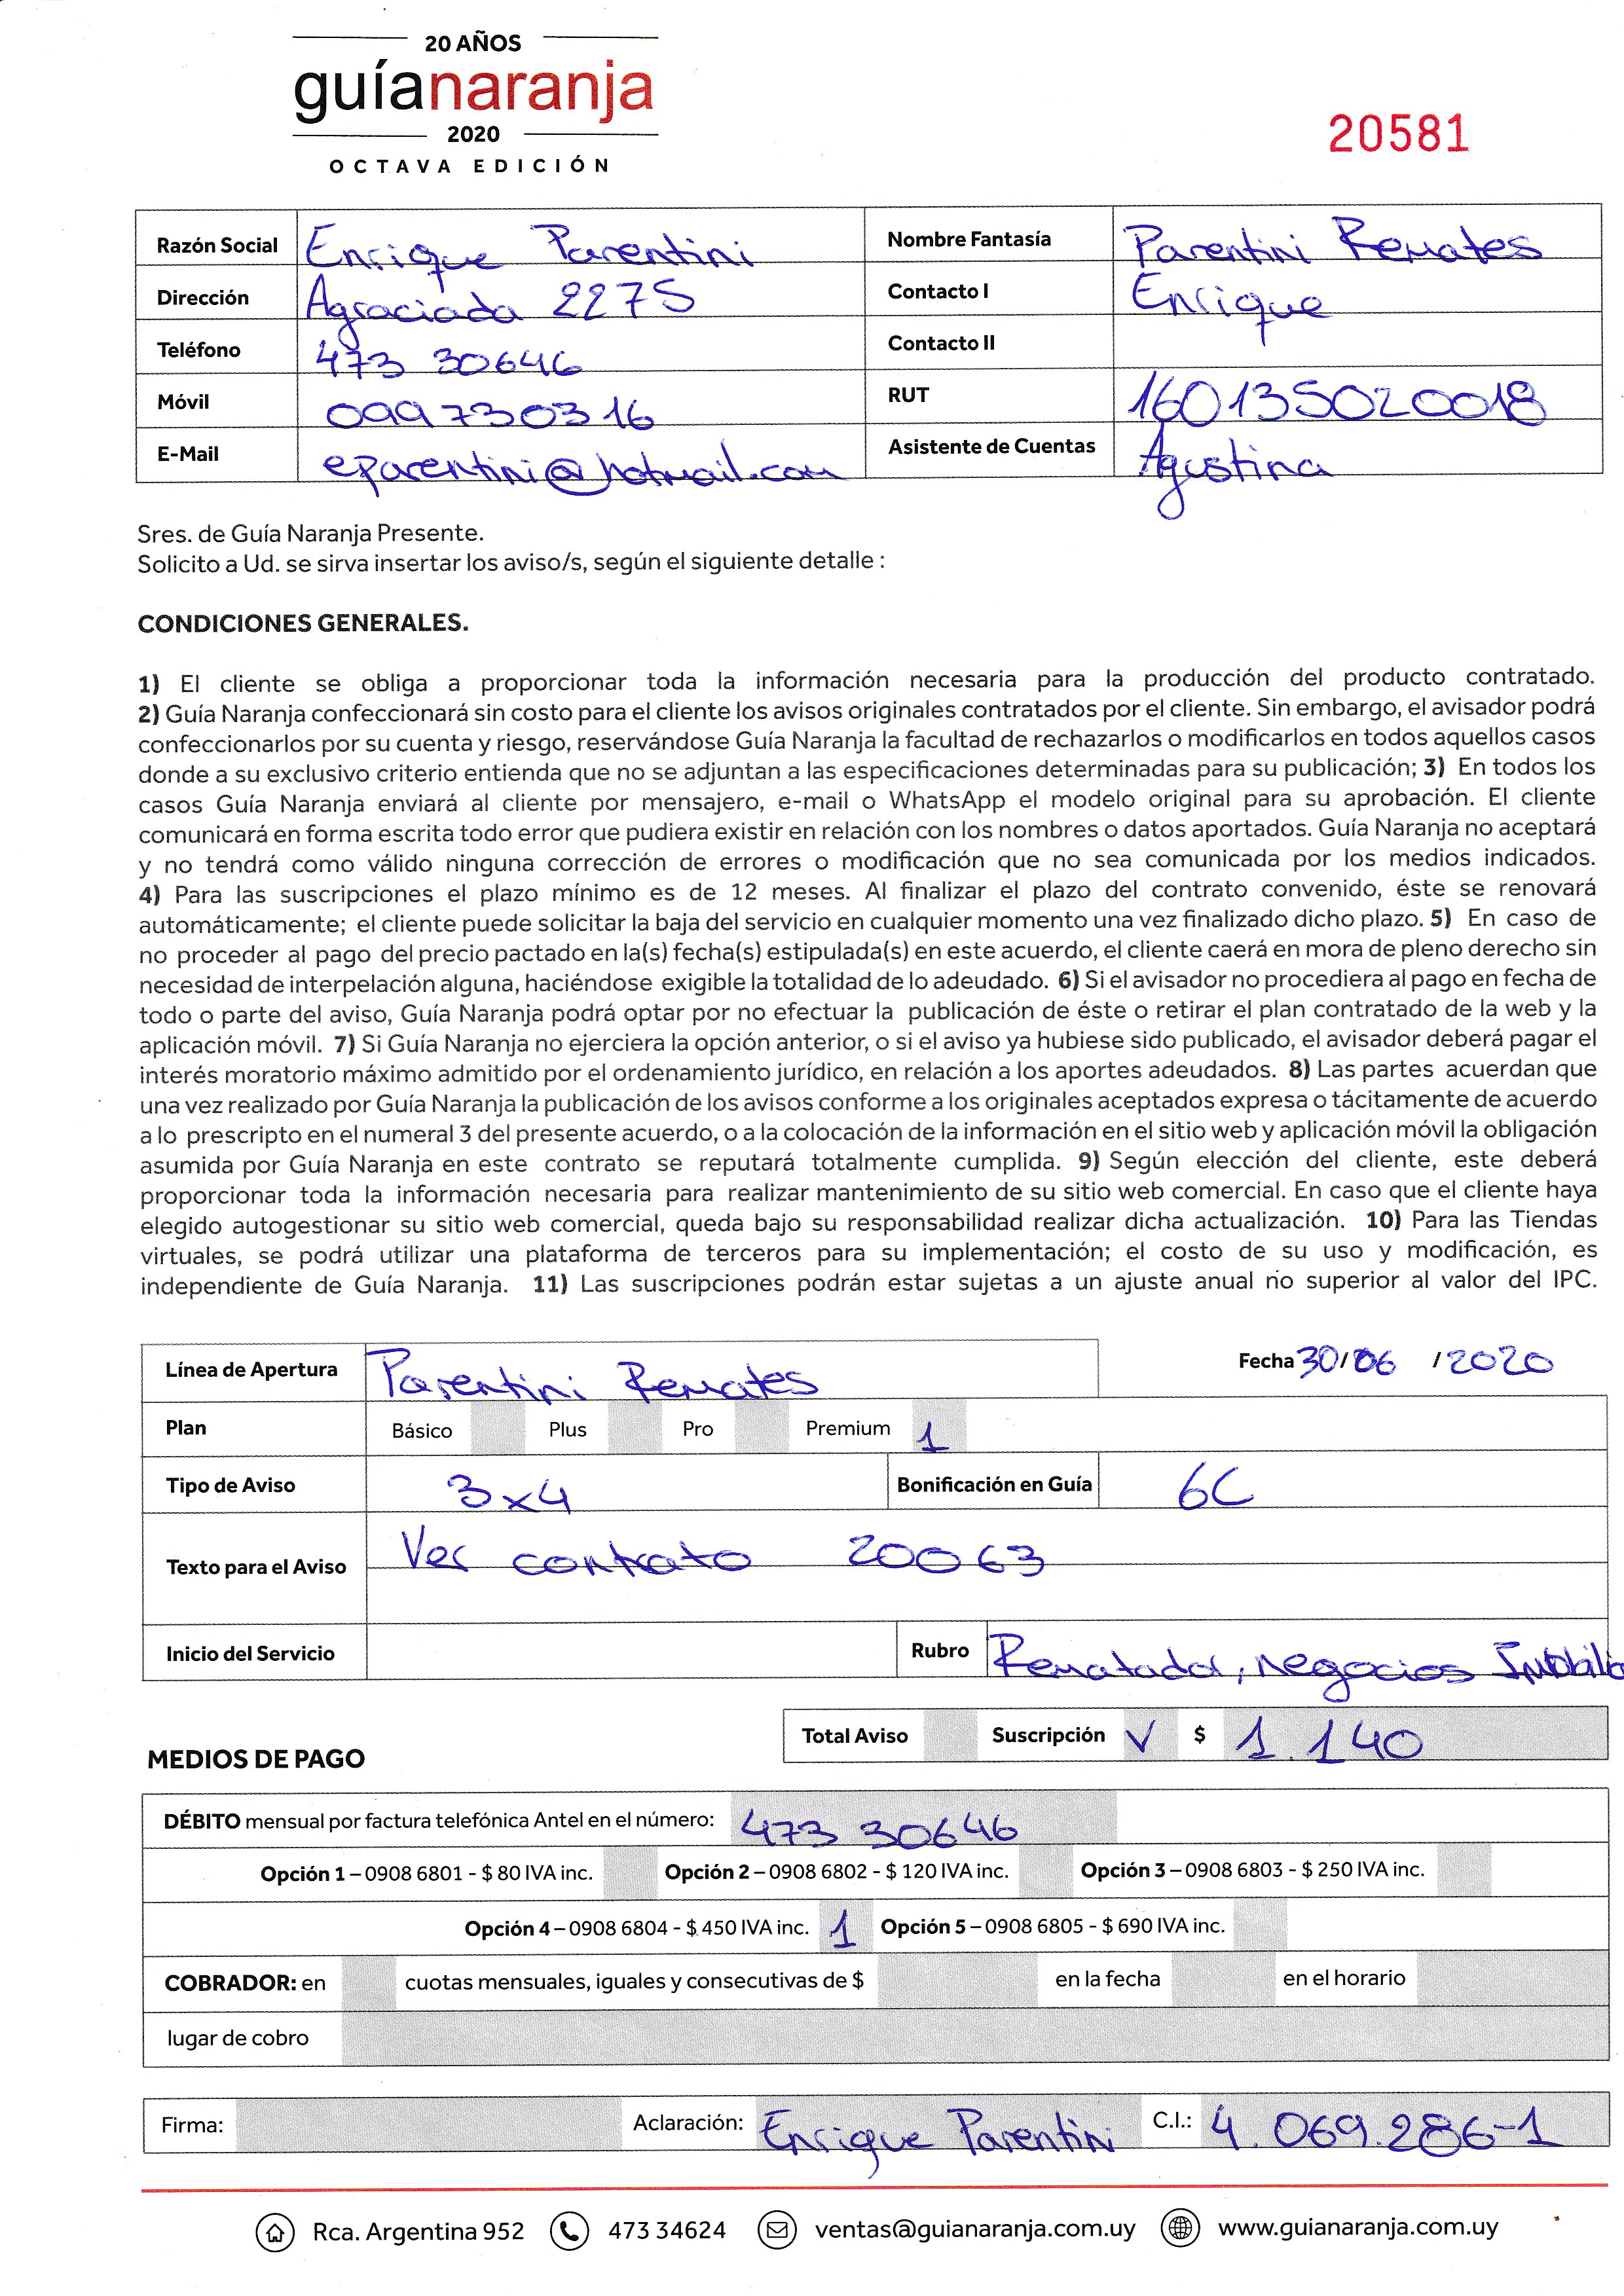 20 AÑOS
guíanaranja
2020
OCTAVA EDICIÓN
20581
Razón Social Enrique Parentini Nombre Fantasía Parentini Remates
Dirección Agraciada 2275 Contacto I Enrique
Teléfono 473 30646 Contacto II
Móvil 099730316 RUT 160135020018
E-Mail eparentini@hotmail.com Asistente de Cuentas Agustina
Sres. de Guía Naranja Presente.
Solicito a Ud. se sirva insertar los aviso/s, según el siguiente detalle :
CONDICIONES GENERALES.
1) El cliente se obliga a proporcionar toda la información necesaria para la producción del producto contratado.
2) Guía Naranja confeccionará sin costo para el cliente los avisos originales contratados por el cliente. Sin embargo, el avisador podrá
confeccionarlos por su cuenta y riesgo, reservándose Guía Naranja la facultad de rechazarlos o modificarlos en todos aquellos casos
donde a su exclusivo criterio entienda que no se adjuntan a las especificaciones determinadas para su publicación; 3) En todos los
casos Guía Naranja enviará al cliente por mensajero, e-mail o WhatsApp el modelo original para su aprobación. El cliente
comunicará en forma escrita todo error que pudiera existir en relación con los nombres o datos aportados. Guía Naranja no aceptará
y no tendrá como válido ninguna corrección de errores o modificación que no sea comunicada por los medios indicados.
4) Para las suscripciones el plazo mínimo es de 12 meses. Al finalizar el plazo del contrato convenido, éste se renovará
automáticamente; el cliente puede solicitar la baja del servicio en cualquier momento una vez finalizado dicho plazo. 5) En caso de
no proceder al pago del precio pactado en la(s) fecha(s) estipulada(s) en este acuerdo, el cliente caerá en mora de pleno derecho sin
necesidad de interpelación alguna, haciéndose exigible la totalidad de lo adeudado. 6) Si el avisador no procediera al pago en fecha de
todo o parte del aviso, Guía Naranja podrá optar por no efectuar la publicación de éste o retirar el plan contratado de la web y la
aplicación móvil. 7) Si Guía Naranja no ejerciera la opción anterior, o si el aviso ya hubiese sido publicado, el avisador deberá pagar el
interés moratorio máximo admitido por el ordenamiento jurídico, en relación a los aportes adeudados. 8) Las partes acuerdan que
una vez realizado por Guía Naranja la publicación de los avisos conforme a los originales aceptados expresa o tácitamente de acuerdo
a lo prescripto en el numeral 3 del presente acuerdo, o a la colocación de la información en el sitio web y aplicación móvil la obligación
asumida por Guía Naranja en este contrato se reputará totalmente cumplida. 9) Según elección del cliente, este deberá
proporcionar toda la información necesaria para realizar mantenimiento de su sitio web comercial. En caso que el cliente haya
elegido autogestionar su sitio web comercial, queda bajo su responsabilidad realizar dicha actualización. 10) Para las Tiendas
virtuales, se podrá utilizar una plataforma de terceros para su implementación; el costo de su uso y modificación, es
independiente de Guía Naranja. 11) Las suscripciones podrán estar sujetas a un ajuste anual no superior al valor del IPC.
Línea de Apertura Parentini Remates Fecha 30/06/2020
Plan Básico Plus Pro Premium 1
Tipo de Aviso 3x4 Bonificación en Guía 6C
Texto para el Aviso Ver contrato 20063
Inicio del Servicio Rubro Rematador, negocios
Total Aviso Suscripción V $ 1.140
MEDIOS DE PAGO
DÉBITO mensual por factura telefónica Antel en el número: 473 30646
Opción 1 – 0908 6801 - $ 80 IVA inc. Opción 2 – 0908 6802 - $ 120 IVA inc. Opción 3 – 0908 6803 - $ 250 IVA inc.
Opción 4 – 0908 6804 - $ 450 IVA inc. 1 Opción 5 – 0908 6805 - $ 690 IVA inc.
COBRADOR: en cuotas mensuales, iguales y consecutivas de $ en la fecha en el horario
lugar de cobro
Firma: Aclaración: Enrique Parentini C.I.: 4.069.286-1
Rca. Argentina 952 473 34624 ventas@guianaranja.com.uy www.guianaranja.com.uy